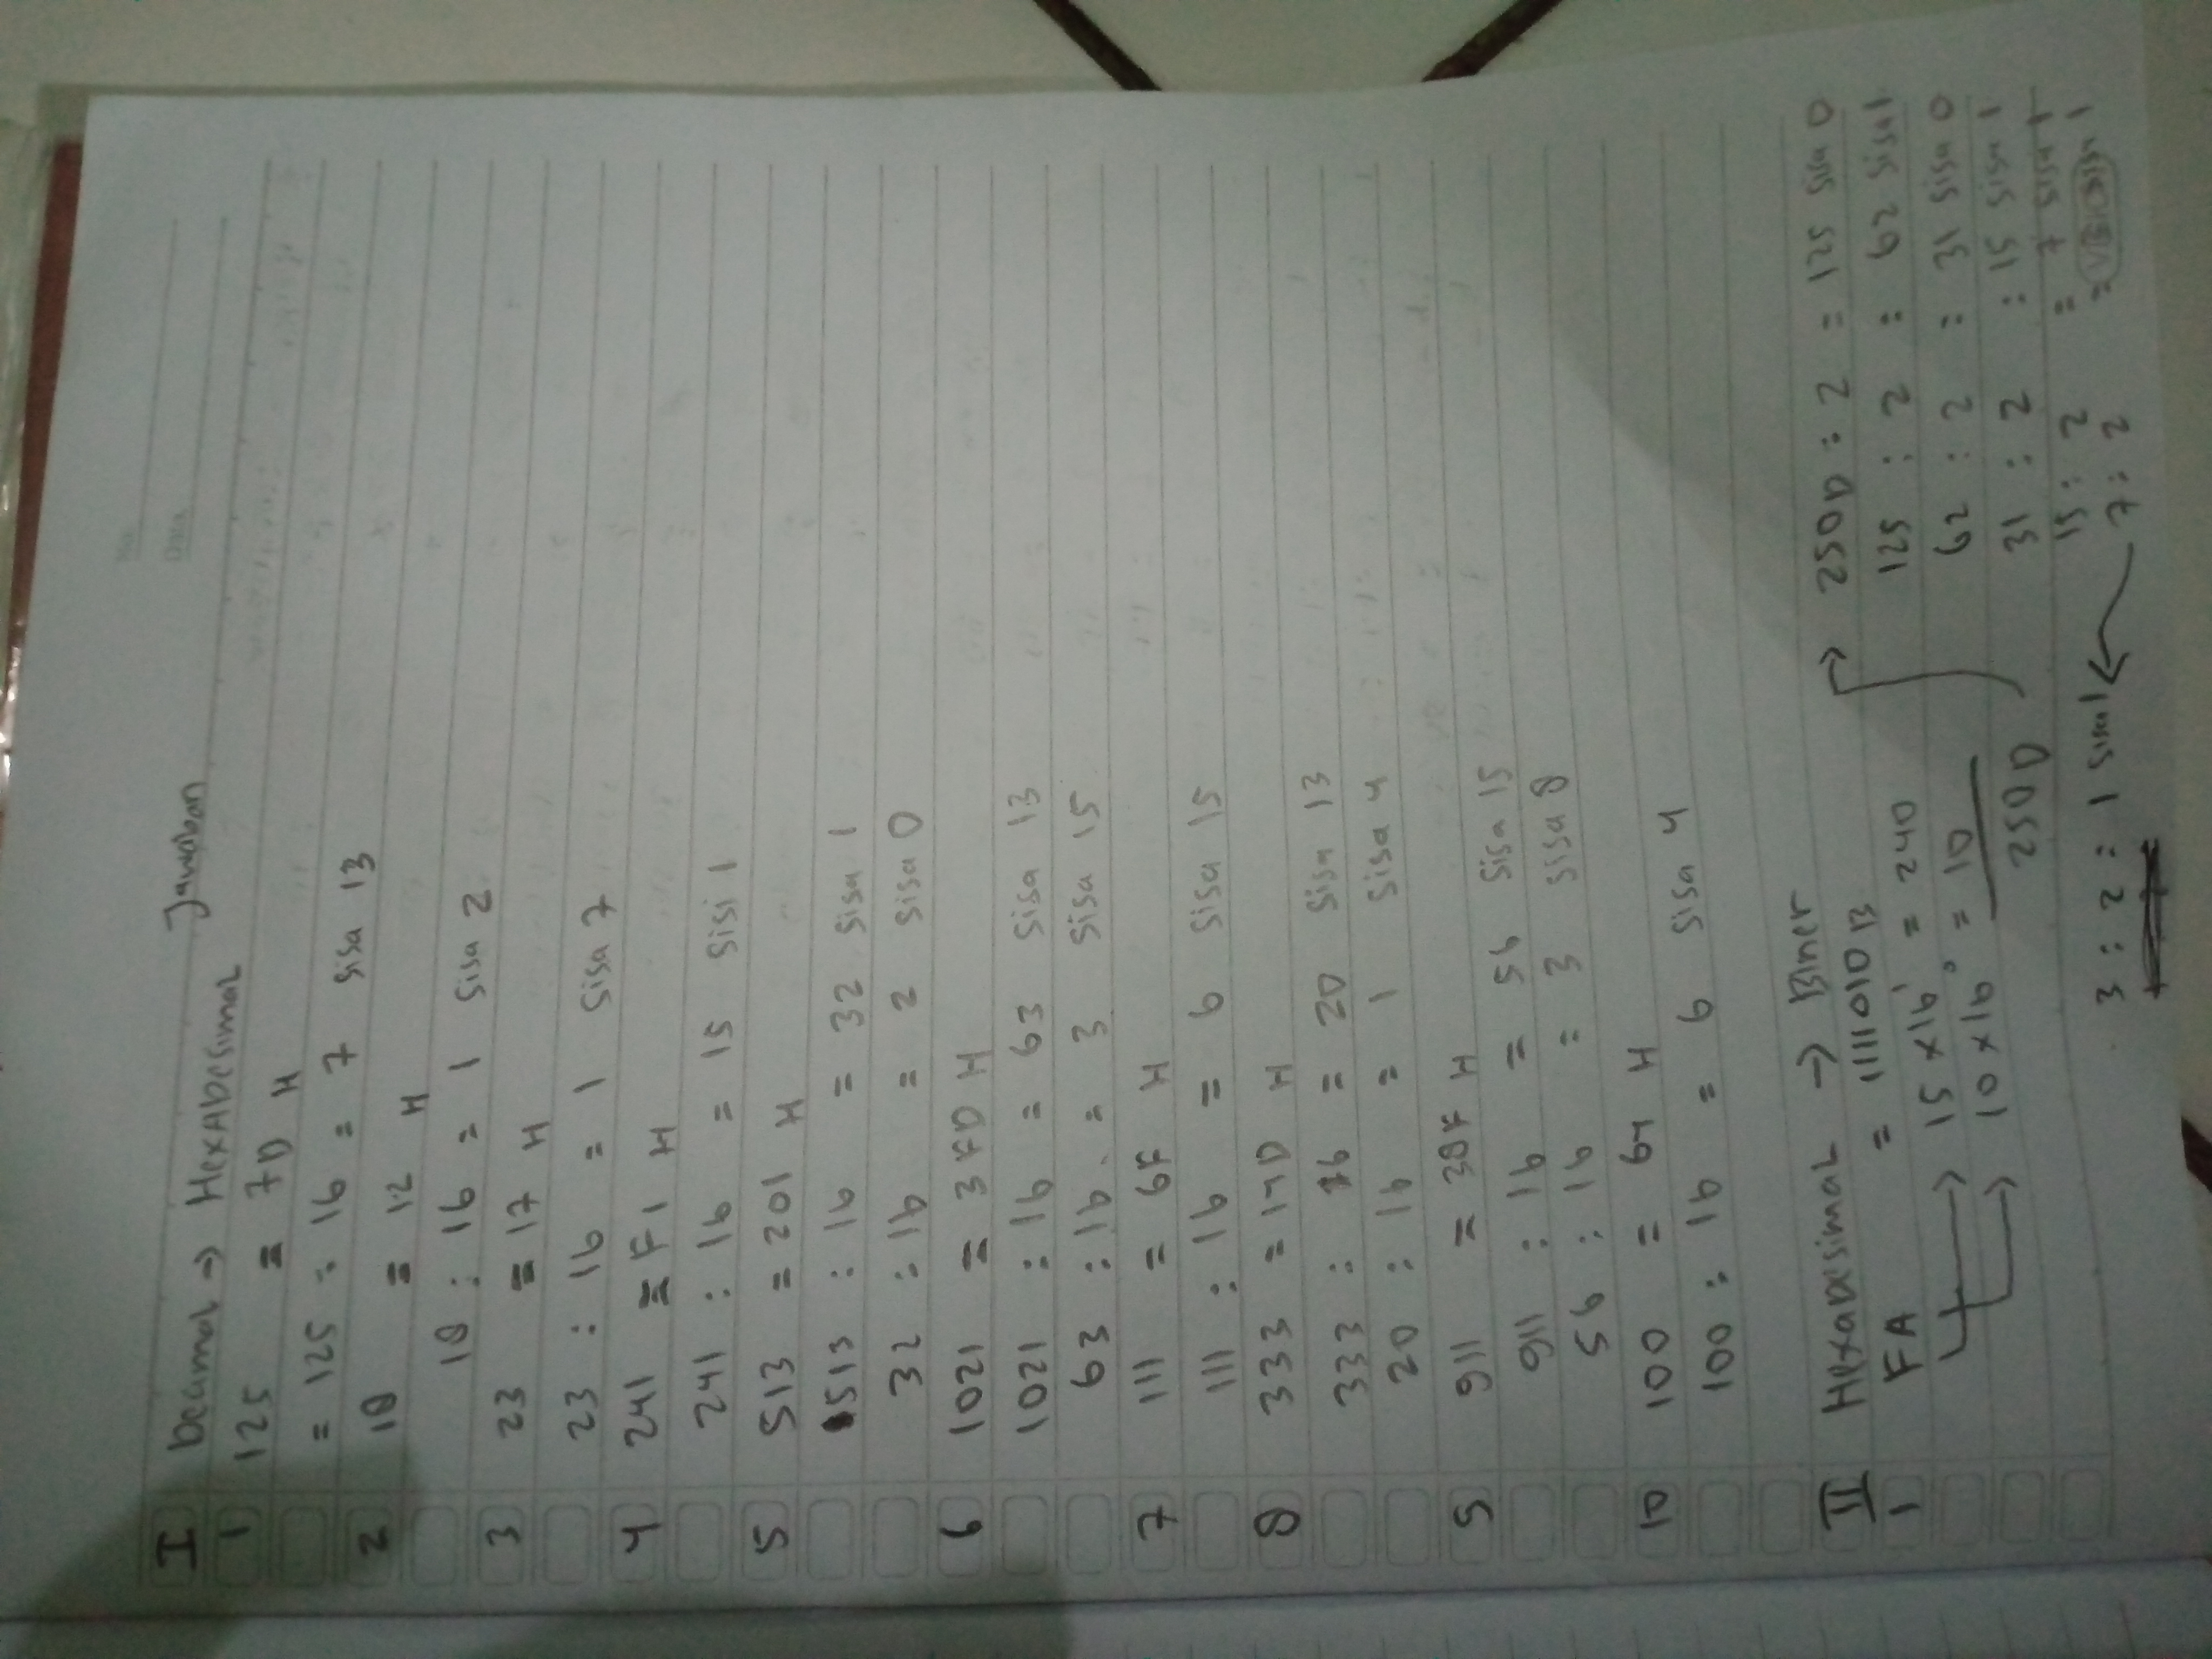 No.
Date
Jawaban
I Decimal → HexADesimal
1 125 = 7D H
= 125 : 16 = 7 sisa 13
2 18 = 12 H
18 : 16 = 1 sisa 2
3 23 = 17 H
23 : 16 = 1 sisa 7
4 241 = F1 H
241 : 16 = 15 sisi 1
5 513 = 201 H
513 : 16 = 32 sisa 1
32 : 16 = 2 sisa 0
6 1021 = 3FD H
1021 : 16 = 63 sisa 13
63 : 16 = 3 sisa 15
7 111 = 6F H
111 : 16 = 6 sisa 15
8 333 = 14D H
333 : 16 = 20 sisa 13
20 : 16 = 1 sisa 4
9 911 = 38F H
911 : 16 = 56 sisa 15
56 : 16 = 3 sisa 8
10 100 = 64 H
100 : 16 = 6 sisa 4
II HexaDesimal → Biner
1 FA = 1111010 B
→ 15 x 16¹ = 240
→ 10 x 16⁰ = 10
250 D
→ 250D : 2 = 125 sisa 0
125 : 2 = 62 sisa 1
62 : 2 = 31 sisa 0
31 : 2 : 15 sisa 1
15 : 2 = 7 sisa 1
7 : 2 = 1
3 : 2 = 1 sisa 1 ←